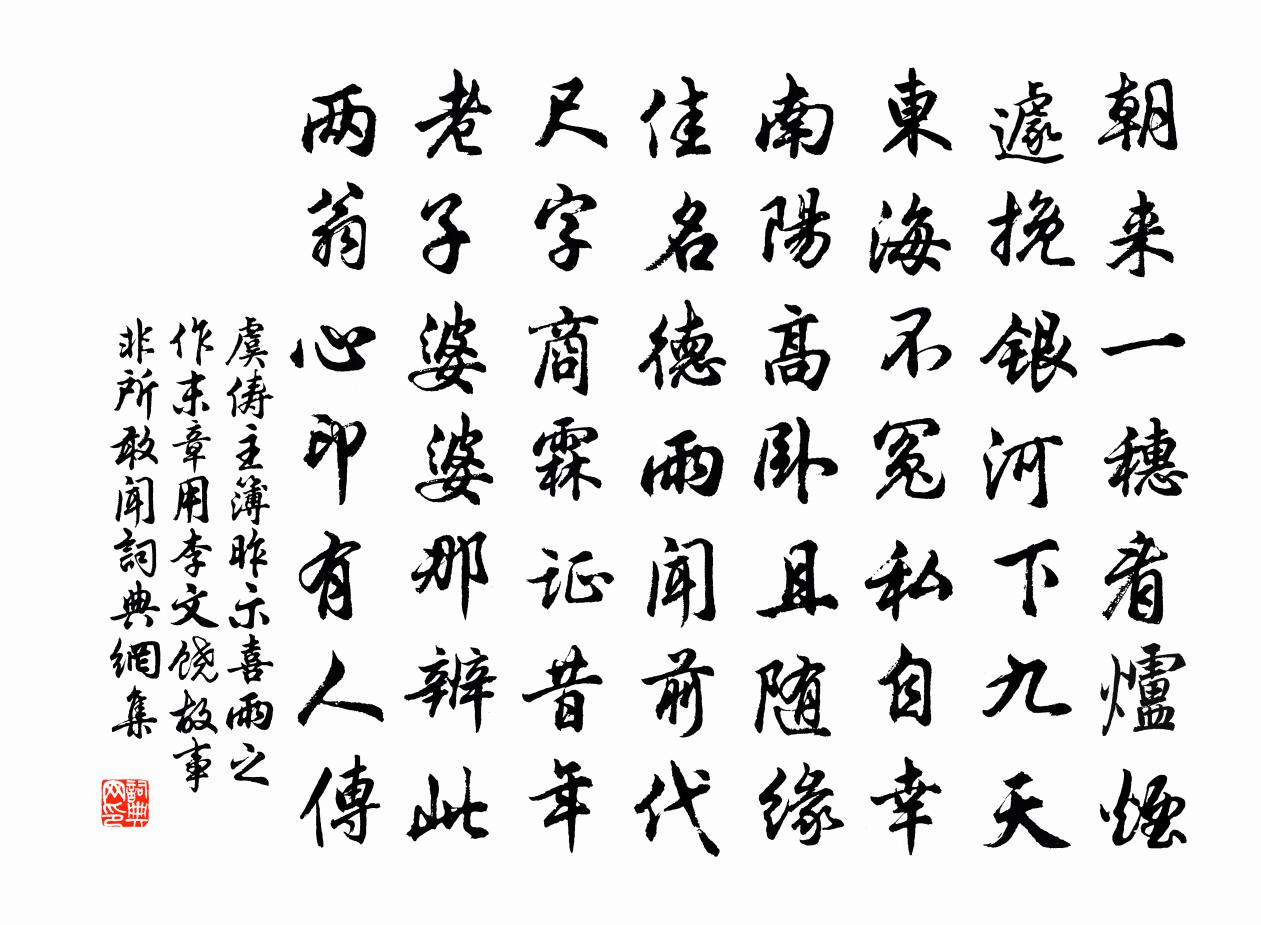 朝来一穗看爐煙
遽挽銀河下九天
東海不冤私自幸
南陽高卧且随緣
佳名德雨聞前代
尺字商霖证昔年
老子婆婆那辨此
两翁心印有人傳
虞俦主簿昨示喜雨之
作末章用李文饒故事
非所敢聞詞典網集
詞典网印